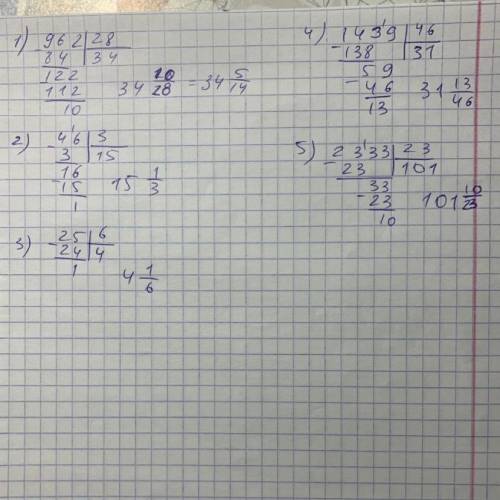 1) 962 | 28
84 | 34
122
112
10
34 10/28 = 34 5/14
2) 46 | 3
3 | 15
16
15
1
15 1/3
3) 25 | 6
24 | 4
1
4 1/6
4) 1439 | 46
138 | 31
59
46
13
31 13/46
5) 2333 | 23
23 | 101
33
23
10
101 10/23